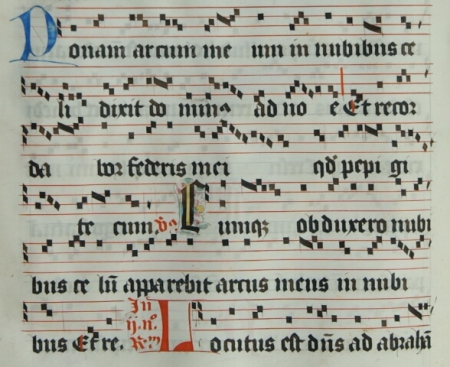 Ponam arcum me um in nubibus ce
li dixit do minꝰ ad no e Et recor
da bor federis mei qđ pepi gi
te cum v̄. Cumqꝫ obduxero nubi
bus ce lū apparebit arcus meus in nubi
bus Et re. In ij. nº. Rm̄ Locutus est dn̄s ad abrahā